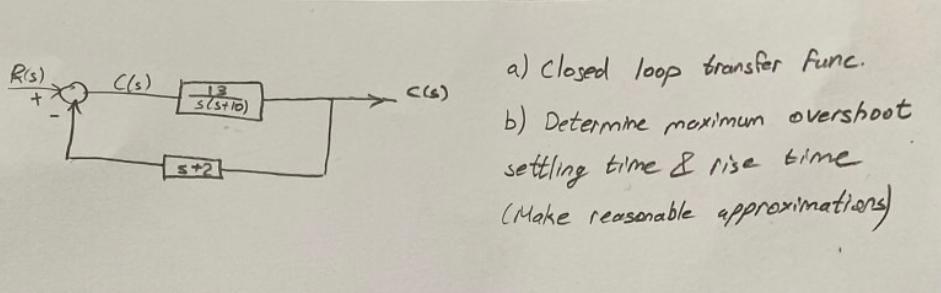 R(s)
+
-
C(s)
13
s(s+10)
C(s)
s+2
a) Closed loop transfer func.
b) Determine maximum overshoot
settling time & rise time
(Make reasonable approximations)